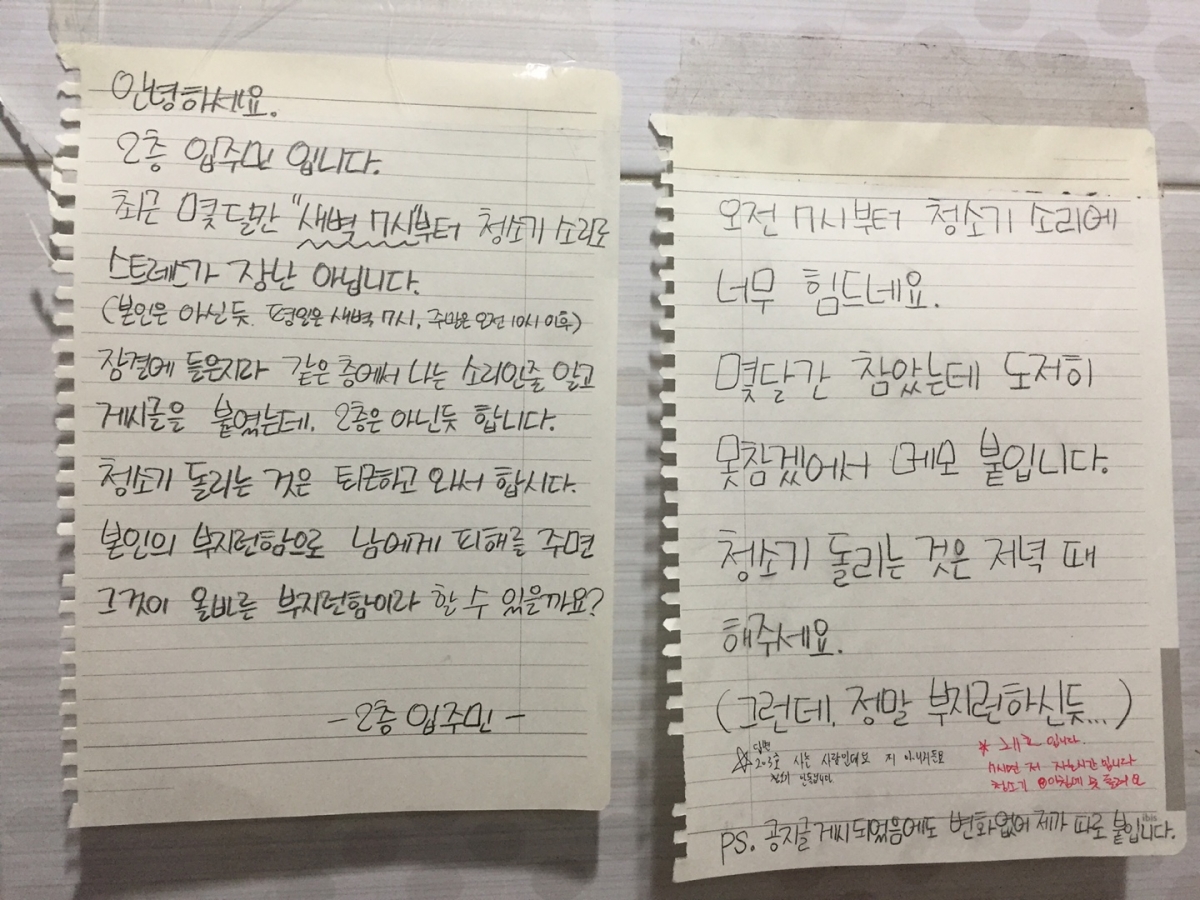 안녕하세요.
2층 입주민 입니다.
최근 몇 달간 "새벽 7시"부터 청소기 소리로
스트레스가 장난 아닙니다.
(본인은 아신듯. 평일은 새벽 7시, 주말은 오전 10시 이후)
잠결에 들은지라 같은 층에서 나는 소리인줄 알고
게시글을 붙였는데, 2층은 아닌듯 합니다.
청소기 돌리는 것은 퇴근하고 와서 합시다.
본인의 부지런함으로 남에게 피해를 주면
그것이 올바른 부지런함이라 할 수 있을까요?
- 2층 입주민 -
오전 7시부터 청소기 소리에
너무 힘드네요.
몇달간 참았는데 도저히
못참겠어서 메모 붙입니다.
청소기 돌리는 것은 저녁 때
해주세요.
(그런데, 정말 부지런하신듯...)
답변
203호 사는 사람인데요 저 아니거든요
* 입니다.
7시면 저 자는시간입니다
청소기 아침에 못 돌려요
PS. 공지글 게시되었음에도 변화없어 제가 따로 붙입니다.